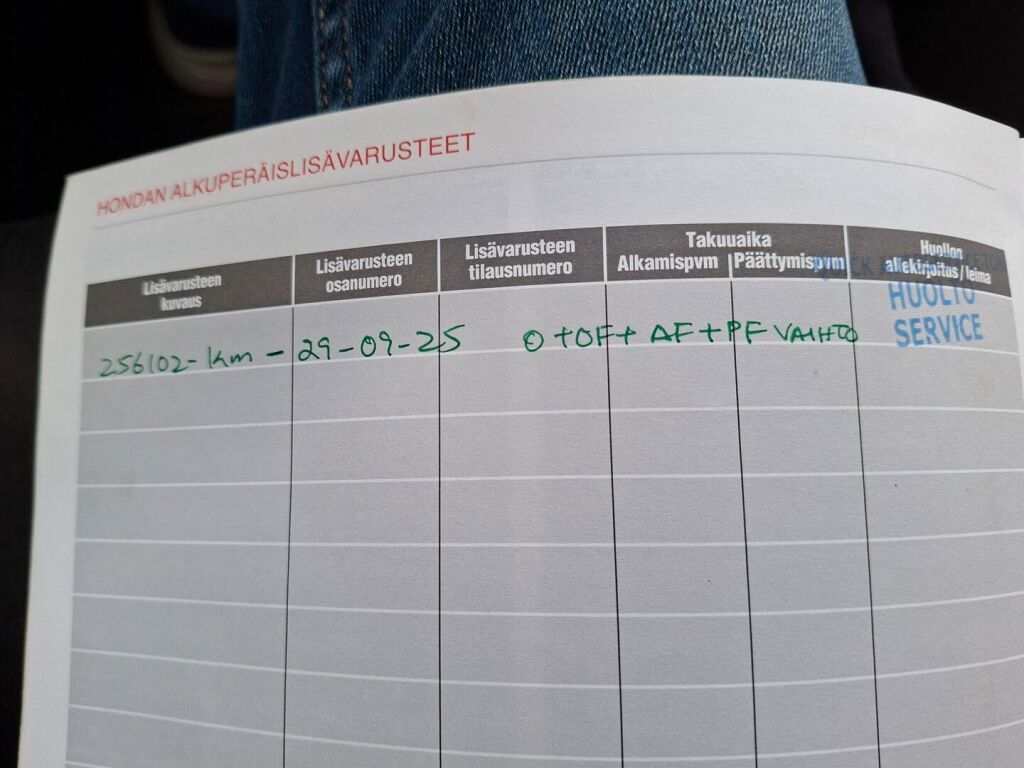 HONDAN ALKUPERÄISLISÄVARUSTEET
Lisävarusteen kuvaus
Lisävarusteen osanumero
Lisävarusteen tilausnumero
Takuuaika
Alkamispvm
Päättymispvm
Huollon allekirjoitus / leima
256102-km - 29-09-25 O+OF+ AF+PF VAIHTO
HUOLTO
SERVICE